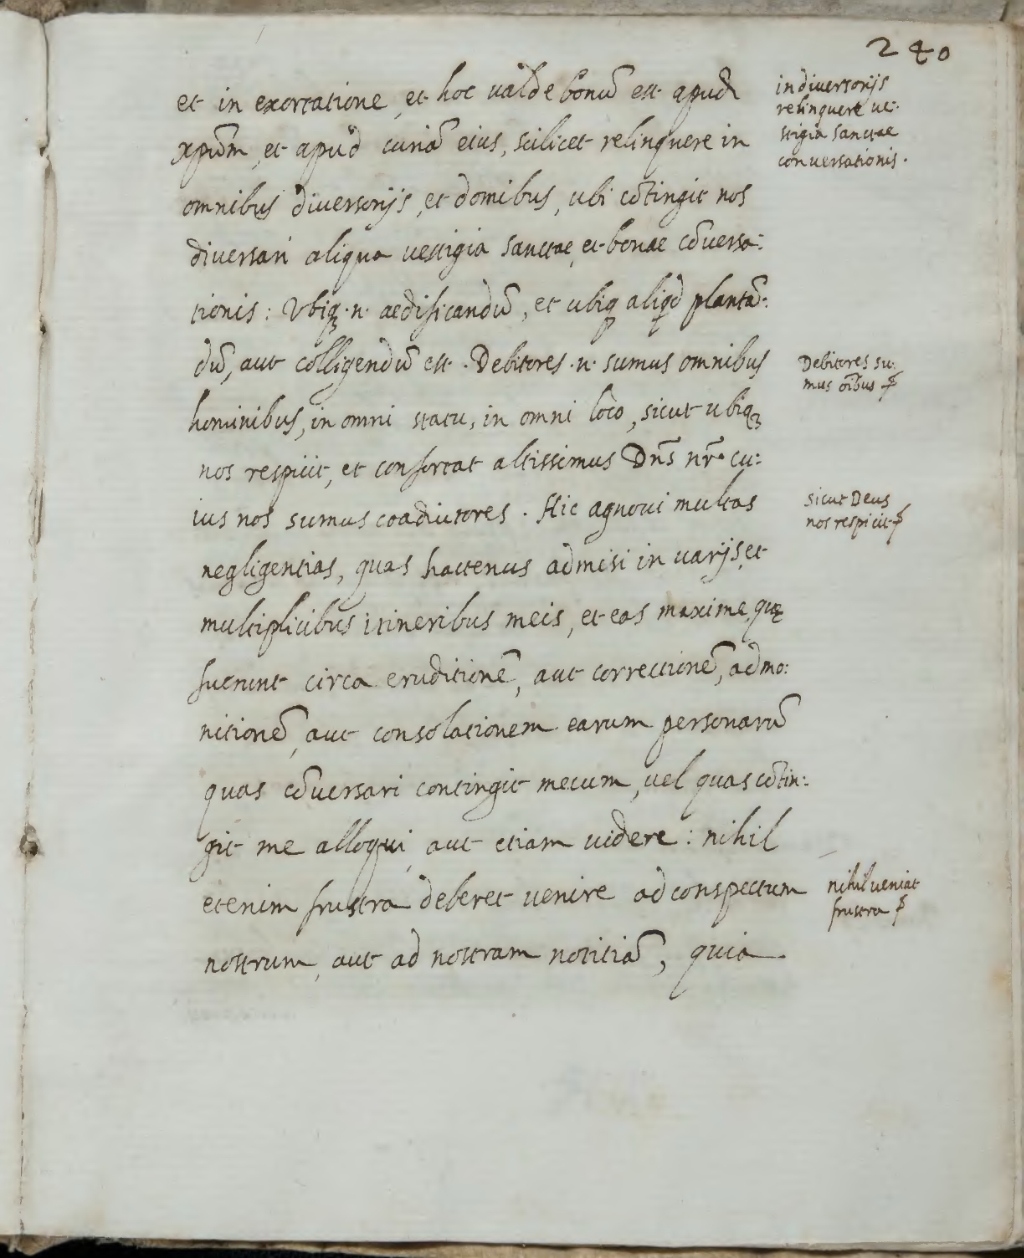 240
et in exortatione, et hoc valde bonũ est apud
xpũm, et apud curiã eius, scilicet relinquere in
omnibus diversorijs, et domibus, ubi cõtingit nos
diversari aliqua vestigia sanctae, et bonae cõversa:
tionis: Ubiqꝫ .n. aedificandũ, et ubiqꝫ aliqd plantã:
dũ, aut colligendũ est. Debitores .n. sumus omnibus
hominibus, in omni statu, in omni loco, sicut ubiqꝫ
nos respicit, et confortat altissimus Dñs nr̃. cu:
ius nos sumus coadiutores. Hic agnovi multas
negligentias, quas hactenus admisi in varijs, et
multiplicibus itineribus meis, et eas maxime, quę
fuerunt circa eruditionẽ, aut correctionẽ, admo:
nitionẽ, aut consolationem earum personarũ
quas cõversari contingit mecum, vel quas cõtin:
git me alloqui, aut etiam videre: nihil
etenim frustra deberet venire ad conspectum
nostrum, aut ad nostram notitiã, quia
in diversorijs
relinquere ve:
stigia sanctae
conversationis.
Debitores su:
mus oĩbus
sicut Deus
nos respicit
nihil veniat
frustra